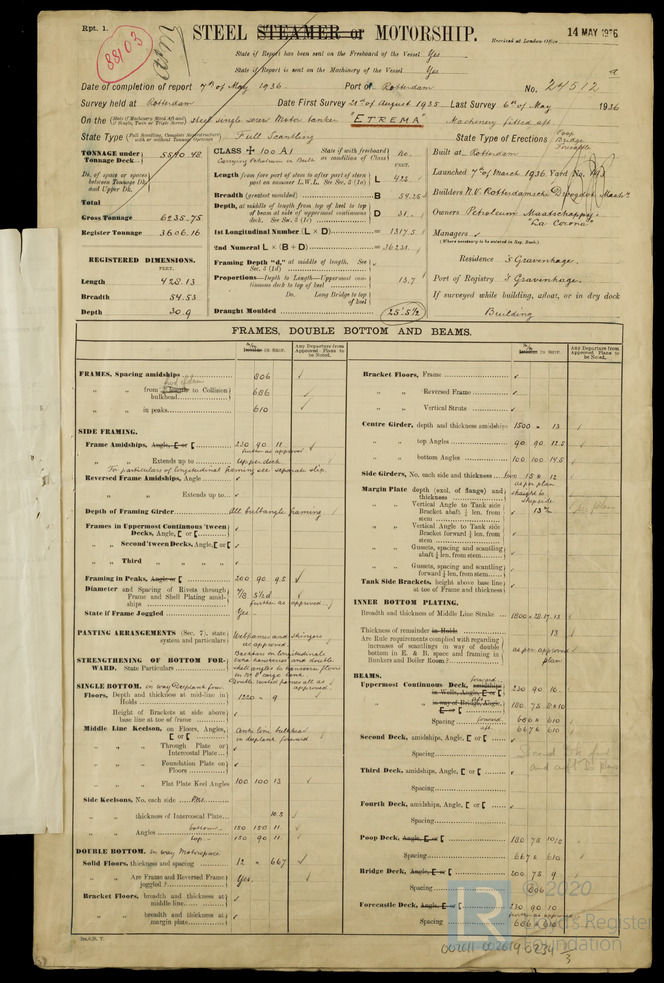 Rpt. 1.
88103
STEEL STEAMER or MOTORSHIP.
Received at London Office
14 MAY 1936
State if Report has been sent on the Freeboard of the Vessel Yes
State if Report is sent on the Machinery of the Vessel Yes
Date of completion of report 7th of May 1936 Port of Rotterdam No. 24512
Survey held at Rotterdam Date First Survey 21st of August 1935 Last Survey 6th of May 1936
On the steel single screw Motor tanker "ETREMA" Machinery fitted aft.
State Type Full Scantling State Type of Erections Poop Bridge Forecastle
TONNAGE under Tonnage Deck 5540.48
Do. of space or spaces between Tonnage Dk. and Upper Dk.
Total
Gross Tonnage 6235.75
Register Tonnage 3606.16
REGISTERED DIMENSIONS.
FEET.
Length 428.13
Breadth 54.53
Depth 30.9
CLASS ✠ 100 A1 State if with freeboard as condition of Class No.
Carrying Petroleum in Bulk
FEET.
L 425
Breadth (greatest moulded) B 54.25
D 31.
1st Longitudinal Number (L × D) = 13175
2nd Numeral L × (B + D) = 36231
Framing Depth "d," at middle of length. See Sec. 3 (1d)
Proportions—Depth to Length—Uppermost continuous deck to top of keel 13.7
Do. Long Bridge to top of keel
Draught Moulded 25'.5½
Built at Rotterdam
Launched 7th of March 1936 Yard No. 193
Builders N.V. Rotterdamsche Droogdok Maats.
Owners Petroleum Maatschappij "La Corona"
Managers
(Where necessary to be entered in Reg. Book.)
Residence 's Gravenhage.
Port of Registry 's Gravenhage.
If surveyed while building, afloat, or in dry dock
Building
FRAMES, DOUBLE BOTTOM AND BEAMS.
Any Departure from Approved Plans to be Noted.
Any Departure from Approved Plans to be Noted.
FRAMES, Spacing amidships 806
" " from to Collision bulkhead 686
" " in peaks 610
SIDE FRAMING.
Frame Amidships, Angle, [ or [ 230 90 11
further as approved
" " Extends up to Upper deck
To particulars of longitudinal framing see separate slip.
Reversed Frame Amidships, Angle
" " Extends up to
Depth of Framing Girder All bulbangle framing
Frames in Uppermost Continuous 'tween Decks, Angle, [ or [
" " Second 'tween Decks, Angle, [ or [
" " Third " " " "
Framing in Peaks, Angle or [ 200 90 9.5
Diameter and Spacing of Rivets through Frame and Shell Plating amidships 7/8 5½d
further as approved.
State if Frame Joggled Yes
PANTING ARRANGEMENTS (Sec. 7), state system and particulars Webframes and stringers as approved.
STRENGTHENING OF BOTTOM FORWARD. State Particulars
SINGLE BOTTOM. in way Deeptank forw.
Floors, Depth and thickness at mid-line in Holds 1220 × 9
Height of Brackets at side above base line at toe of frame
Middle Line Keelson, on Floors, Angles, [ or [ Centreline bulkhead in deeptank forward
" " Through Plate or Intercostal Plate
" " Foundation Plate on Floors
" " Flat Plate Keel Angles 100 100 13
Side Keelsons, No. each side
" " thickness of Intercostal Plate 10.5
" " Angles bottom 150 150 11
top 150 90 11
DOUBLE BOTTOM. in way Motorspace
Solid Floors, thickness and spacing 12 × 667
" " Are Frame and Reversed Frame joggled? Yes.
Bracket Floors, breadth and thickness at middle line
" " breadth and thickness at margin plate
Bracket Floors, Frame
" " Reversed Frame
" " Vertical Struts
Centre Girder, depth and thickness amidships 1500 × 13
" " top Angles 90 90 12.5
" " bottom Angles 100 100 14.5
Side Girders, No. each side and thickness two 15 & 12
as per plan
Margin Plate depth (excl. of flange) and thickness straight to shipside
" " Vertical Angle to Tank side Bracket abaft ¼ len. from stem
" " Vertical Angle to Tank side Bracket forward ¼ len. from stem
" " Gussets, spacing and scantling abaft ¼ len. from stem
" " Gussets, spacing and scantling forward ¼ len. from stem
Tank Side Brackets, height above base line at toe of Frame and thickness
INNER BOTTOM PLATING.
Breadth and thickness of Middle Line Strake
Thickness of remainder in Holds 13
Are Rule requirements complied with regarding increases of scantlings in way of double bottom in E. & B. space and framing in Bunkers and Boiler Room? as per approved plan
BEAMS.
Uppermost Continuous Deck, amidships in Wells, Angle, [ or [ forward 230 90 10
" " in way of Bridge, Angle, [ or [ aft 180 75 8&10
Spacing forward 686 & 610
aft 667 & 610
Second Deck, amidships, Angle, [ or [
Spacing
Third Deck, amidships, Angle, [ or [
Spacing
Fourth Deck, amidships, Angle, [ or [
Spacing
Poop Deck, Angle, [ or [ 180 75
Spacing 667 & 610
Bridge Deck, Angle, [ or [ 200 75 9
Spacing 806
Forecastle Deck, Angle, [ or [ 230 90 10
further as approved
Spacing 686 & 610
© 2020
Lloyd's Register
Foundation
002611-002619-0234 1/3